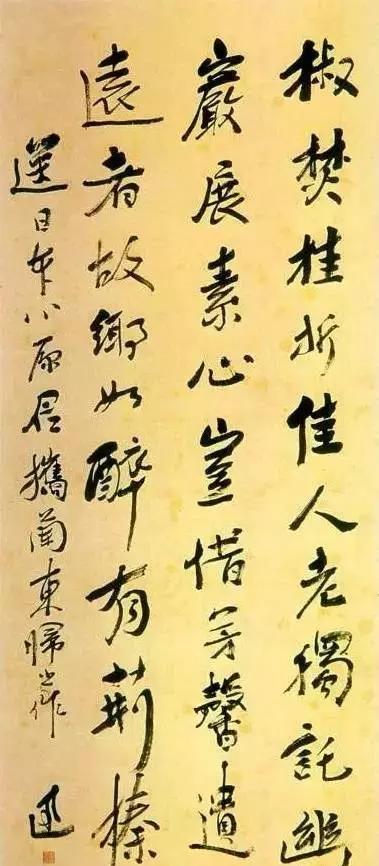 椒焚桂折佳人老獨託幽
巖展素心豈惜芳馨遺
遠者故鄉如醉有荊榛
送日本小原君攜蘭東歸作
迅